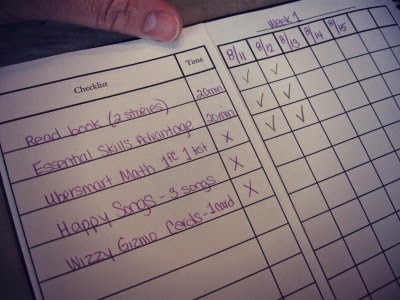 Checklist Time
Read book (2 stories) 20 min
Essential Skills Advantage 20 min
Ubersmart Math 1fc 1 tst X
Happy Songs - 3 songs X
Wizzy Gizmo Cards - 1 card X
Week 1
8/11 8/12 8/13 8/14 8/15
✓ ✓
✓ ✓
✓ ✓